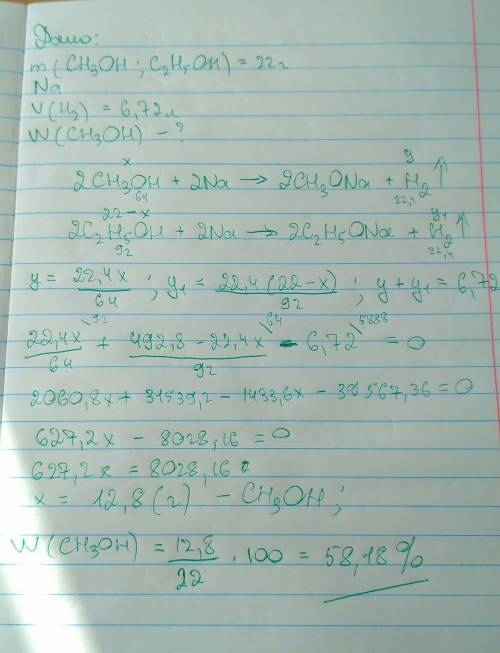 Дано:
m(CH3OH; C2H5OH) = 22г
Na
V(H2) = 6,72л
W(CH3OH) - ?
x y
2CH3OH + 2Na → 2CH3ONa + H2 ↑
64 22,4
22-x y1
2C2H5OH + 2Na → 2C2H5ONa + H2 ↑
92 22,4
y = 22,4x / 64 ; y1 = 22,4(22-x) / 92 ; y + y1 = 6,72
22,4x / 64 \92 + 492,8 - 22,4x / 92 \64 - 6,72 \5888 = 0
2060,8x + 31539,2 - 1433,6x - 39567,36 = 0
627,2x - 8028,16 = 0
627,2x = 8028,16
x = 12,8(г) - CH3OH;
W(CH3OH) = 12,8 / 22 · 100 = 58,18%